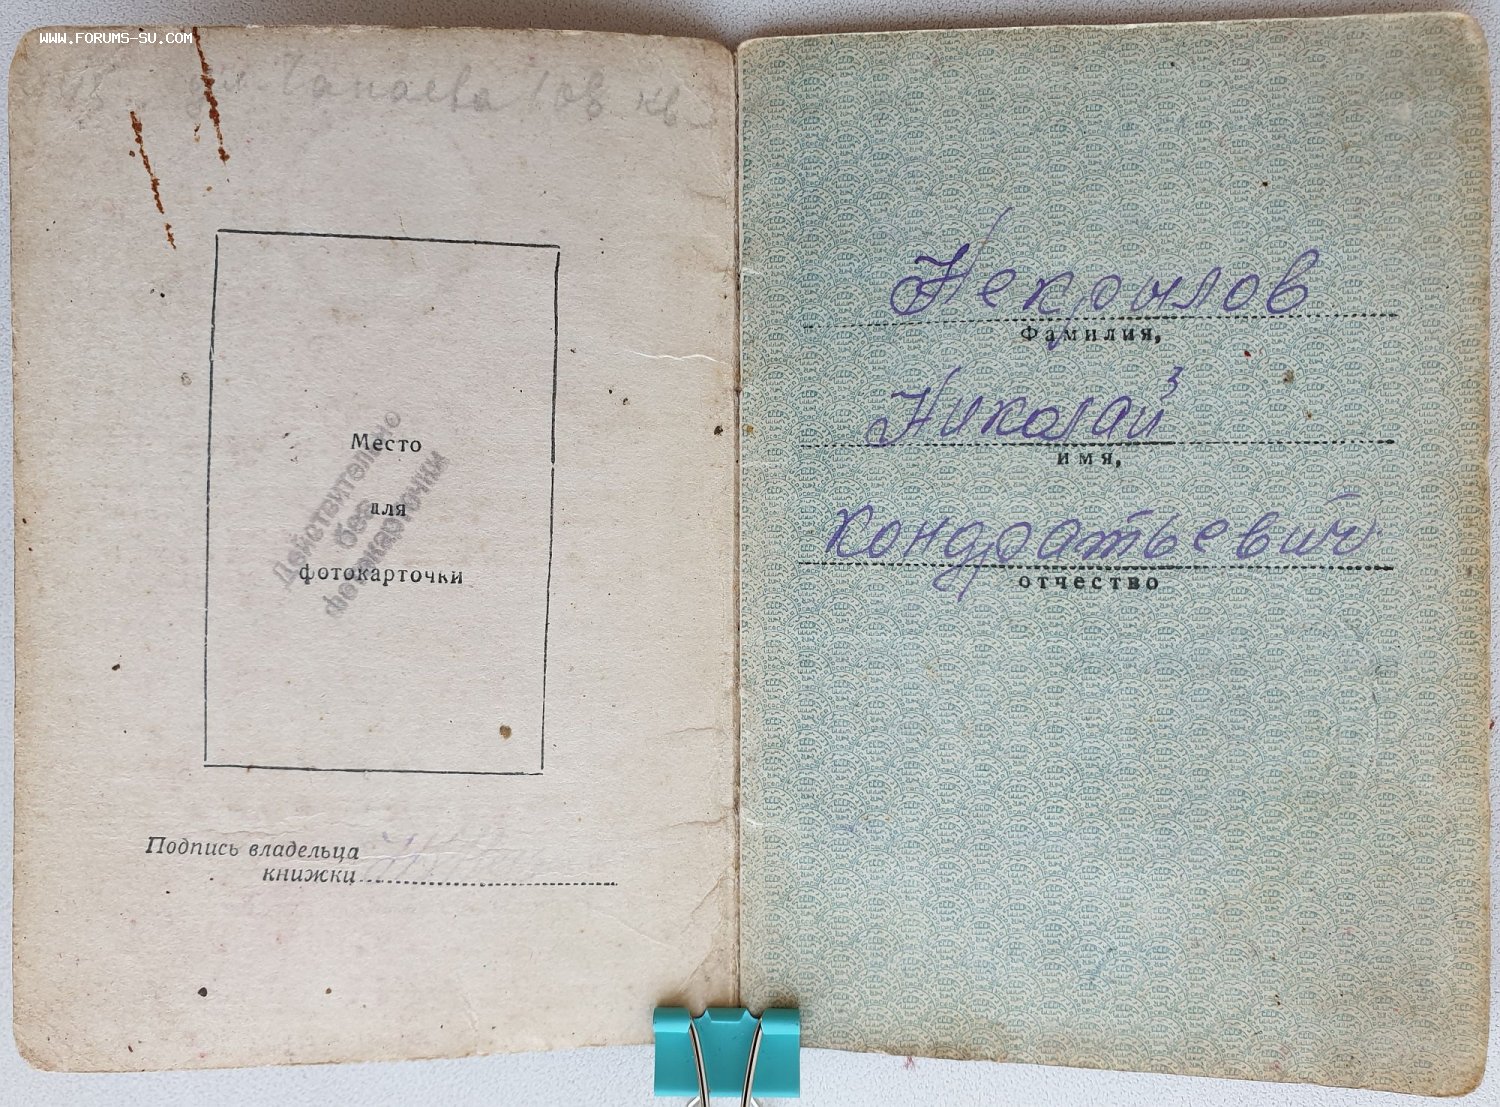 WWW.FORUMS-SU.COM
ул. Чапаева 10в кв
Место
для
фотокарточки
Действительно
без
фотокарточки
Подпись владельца
книжки
Некрылов
Фамилия,
Николай
имя,
Кондратьевич
отчество